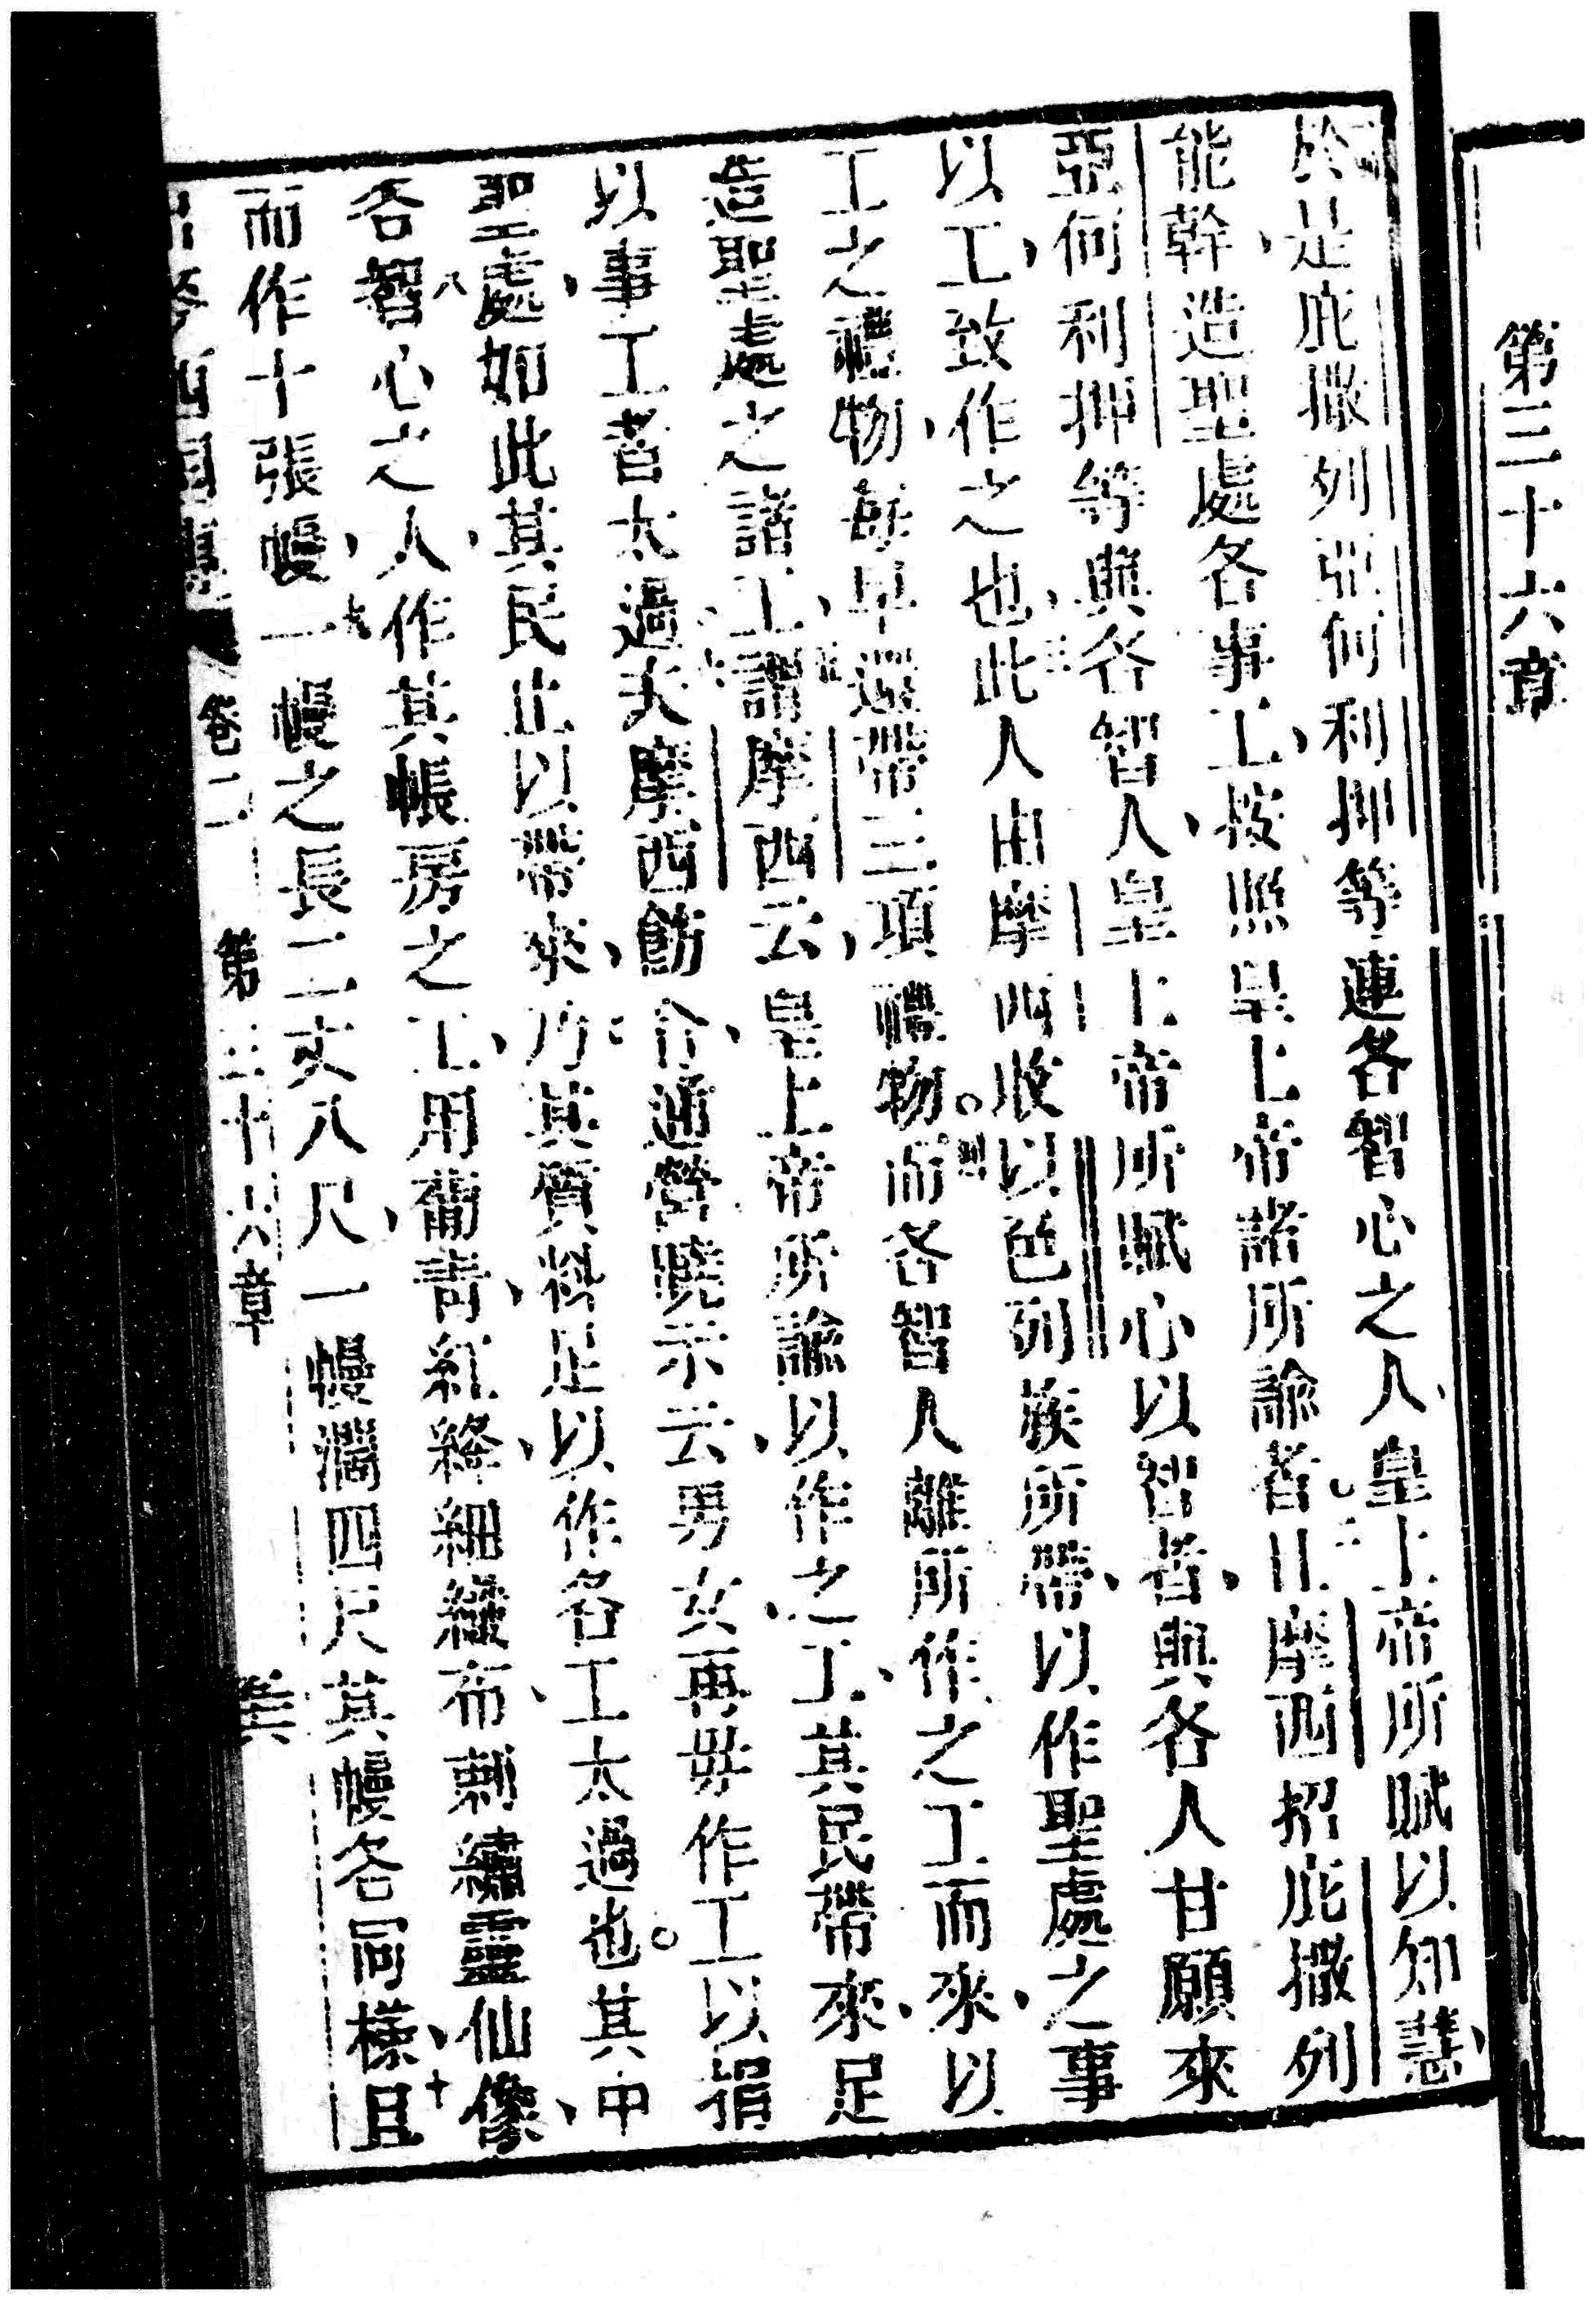 第三十六章
於是庇撒列亞何利押等連各智心之人皇上帝所賦以知慧、
能幹、造聖處各事工、按照皇上帝諸所諭者。二日摩西招庇撒列
亞何利押等與各智人、皇上帝所賦心以智者、與各人甘願來
以工、致作之也、三此人由摩西收以色列族所帶、以作聖處之事
工之禮物、每早還帶三項禮物。四而各智人離所作之工而來、以
造聖處之諸工、五謂摩西云、皇上帝所諭以作之工、其民帶來、足
以事工者太過夫、六摩西飭令、通營曉示云、男女再毋作工以捐
聖處、如此其民止以帶來、七乃其質料足以作各工太過也。其中
各智心之人、作其帳房之工、用葡青、紅絳、細綫布、刺繡靈仙像、
而作十張幔、九一幔之長二丈八尺、一幔濶四尺其幔各同樣、十且
卷二 第三十六章